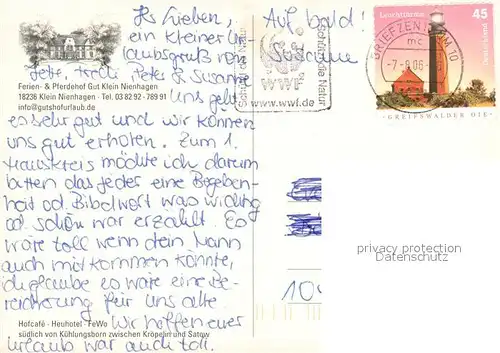 Ihr Lieben,
ein kleiner Ur-
laubsgruß von
Peter & Susanne
Ferien- & Pferdehof Gut Klein Nienhagen
18236 Klein Nienhagen · Tel. 03 82 92 - 789 91
info@gutshofurlaub.de
Uns geht
es sehr gut und wir können
uns gut erholen. Zum 1.
Hauskreis möchte ich darum
bitten das jedes eine Begeben-
heit od. Bibelwort was wichtig
od. schön war erzählt. Es
wäre toll wenn dein Mann
auch mitkommen könnte,
ich glaube es wäre eine Be-
reicherung für uns alle.
Wir hoffen euer
Urlaub war auch toll.
Hofcafé · Heuhotel · FeWo
südlich von Kühlungsborn zwischen Kröpelin und Satow
Auf bald!
Susanne
Schützt die Natur
WWF
www.wwf.de
BRIEFZENTRUM 10
mc
-7.-9.06
Leuchttürme
45
Deutschland
-GREIFSWALDER OIE-
privacy protection
Datenschutz
104